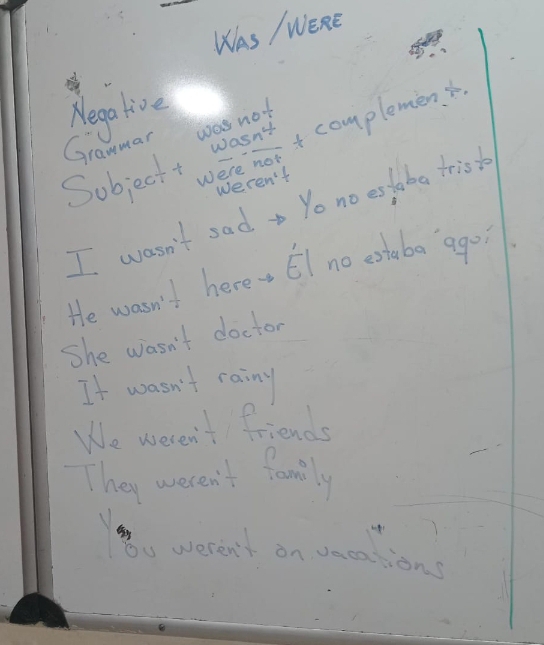 WAS / WERE
Negative
Grammar
was not
wasn't
Subject + were not + complement.
weren't
I wasn't sad → Yo no estaba triste
He wasn't here → Él no estaba aquí
She wasn't doctor
It wasn't rainy
We weren't friends
They weren't family
You weren't on vacations